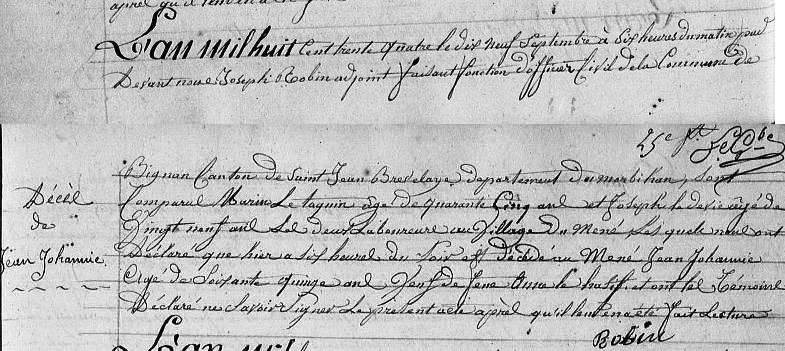 L'an mil huit cent trente quatre le dix neuf Septembre à Six heures du matin, par
Devant nous Joseph Robin adjoint faisant fonction d'officier Civil de la Commune de
Décès
de
Jean Johannic
Bignan Canton de Saint Jean Brevelaye, departement du morbihan, sont
Comparus Marin Le taquin âge de quarante Cinq ans et Joseph le devic âgé de
Vingt neuf ans tous deux Laboureurs au Village du Mené, Les quels nous ont
Déclaré que hier a six heures du Soir est Décédé au Mené Jean Johannic
Agé de Soixante quinze ans Veuf de feue Anne le hasif et ont les Témoins
Déclaré ne Savoir Signer Le présent acte après qu'il leur en a été fait Lecture
Robin